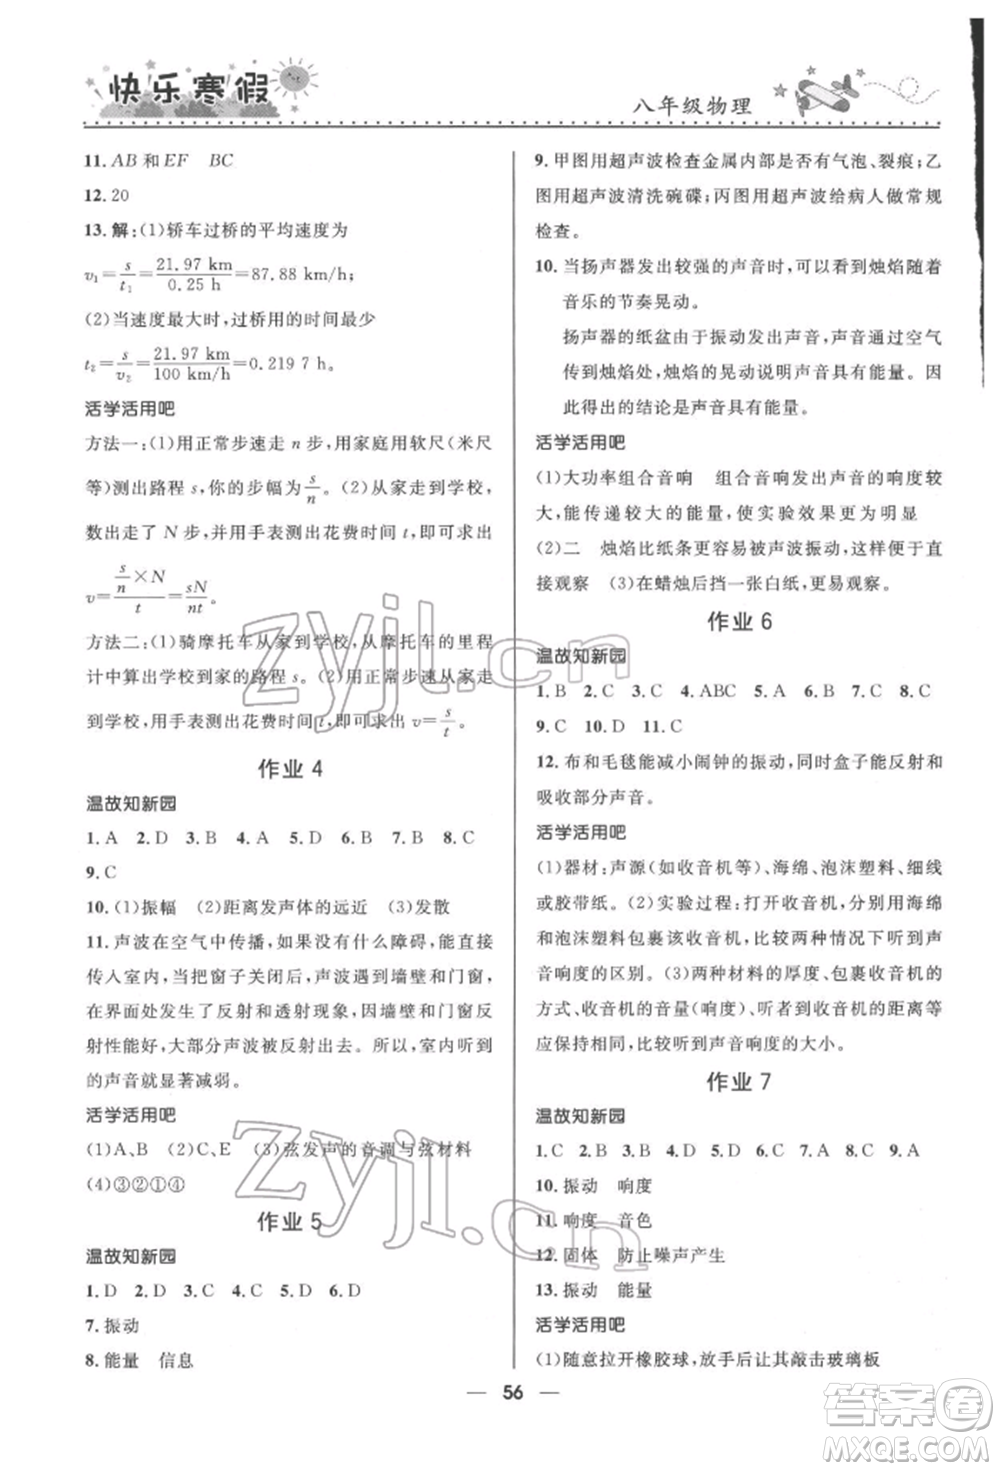 快乐寒假
八年级物理
11. AB 和 EF  BC
12. 20
13. 解:(1)轿车过桥的平均速度为
v₁=s/t₁=21.97 km/0.25 h=87.88 km/h;
(2)当速度最大时,过桥用的时间最少
t₂=s/v₂=21.97 km/100 km/h=0.219 7 h
活学活用吧
方法一:(1)用正常步速走 n 步,用家庭用软尺(米尺
等)测出路程 s,你的步幅为 s/n。(2)从家走到学校,
数出走了 N 步,并用手表测出花费时间 t,即可求出
v=(s/n×N)/t=sN/nt。
方法二:(1)骑摩托车从家到学校,从摩托车的里程
计中算出学校到家的路程 s。(2)用正常步速从家走
到学校,用手表测出花费时间 t,即可求出 v=s/t。
作业 4
温故知新园
1. A  2. D  3. B  4. A  5. D  6. D  7. B  8. C
9. C
10. (1)振幅  (2)距离发声体的远近  (3)发散
11. 声波在空气中传播,如果没有什么障碍,能直接
传入室内,当把窗子关闭后,声波遇到墙壁和门窗,
在界面处发生了反射和透射现象,因墙壁和门窗
反射性能好,大部分声波被反射回去。所以,室内听到
的声音就显著减弱。
活学活用吧
(1)A、B  (2)C、E  (3)弦发声的音调与弦材料
(4)③②①④
作业 5
温故知新园
1. D  2. D  3. C  4. C  5. D  6. D
7. 振动
8. 能量  信息
9. 甲图用超声波检查金属内部是否有气泡、裂痕;乙
图用超声波清洗碗碟;丙图用超声波给病人做常规
检查。
10. 当扬声器发出较强的声音时,可以看到烛焰随着
音乐的节奏晃动。
扬声器的纸盆由于振动发出声音,声音通过空气
传到烛焰处,烛焰的晃动说明声音具有能量。因
此得出的结论是声音具有能量。
活学活用吧
(1)大功率组合音响  组合音响发出声音的响度较
大,能传递较大的能量,使实验效果更为明显
(2)二  烛焰比纸条更容易被声波振动,这样便于直
接观察  (3)在蜡烛后挡一张白纸,更易观察。
作业 6
温故知新园
1. B  2. C  3. C  4. ABC  5. A  6. B  7. C  8. C
9. C  10. D  11. C
12. 布和毛毯能减小闹钟的振动,同时盒子能反射和
吸收部分声音。
活学活用吧
(1)器材:声源(如收音机等)、海绵、泡沫塑料、细线
或胶带纸。(2)实验过程:打开收音机,分别用海绵
和泡沫塑料包裹该收音机,比较两种情况下听到声
音响度的区别。(3)两种材料的厚度、包裹收音机的
方式、收音机的音量(响度)、听者到收音机的距离
应保持相同,比较听到声音响度的大小。
作业 7
温故知新园
1. C  2. B  3. C  4. A  5. D  6. A  7. B  8. C  9. A
10. 振动  响度
11. 响度  音色
12. 固体  防止噪声产生
13. 振动  能量
活学活用吧
(1)随意拉开橡胶球,放手后让其敲击玻璃板
— 56 —
zyjl.cn
zyjl.cn
答案圈
MXQE.COM